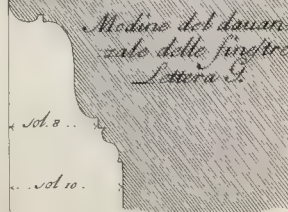 Modine del dauan
zale delle finestre
Lettera G.
sol. 8
sol 10.